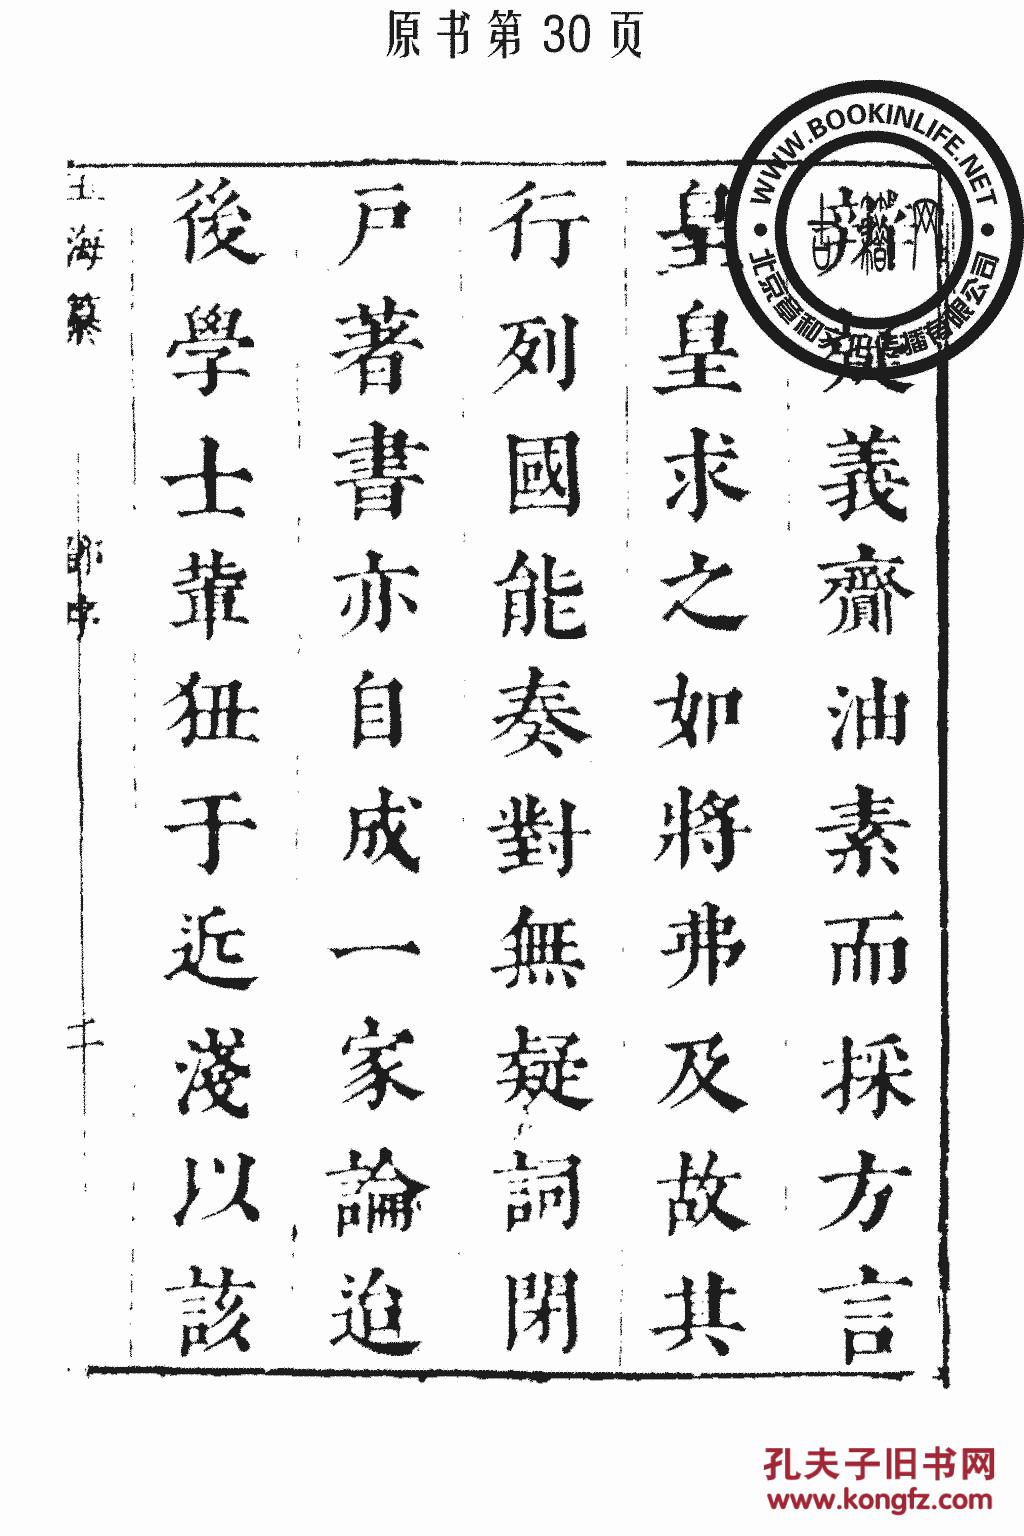 原书第30页
WWW.BOOKINLIFE.NET
義齎油素而採方言
皇皇求之如將弗及故其
行列國能奏對無疑詞閉
戶著書亦自成一家論迨
後學士輩狃于近淺以該
海纂
孔夫子旧书网
www.kongfz.com